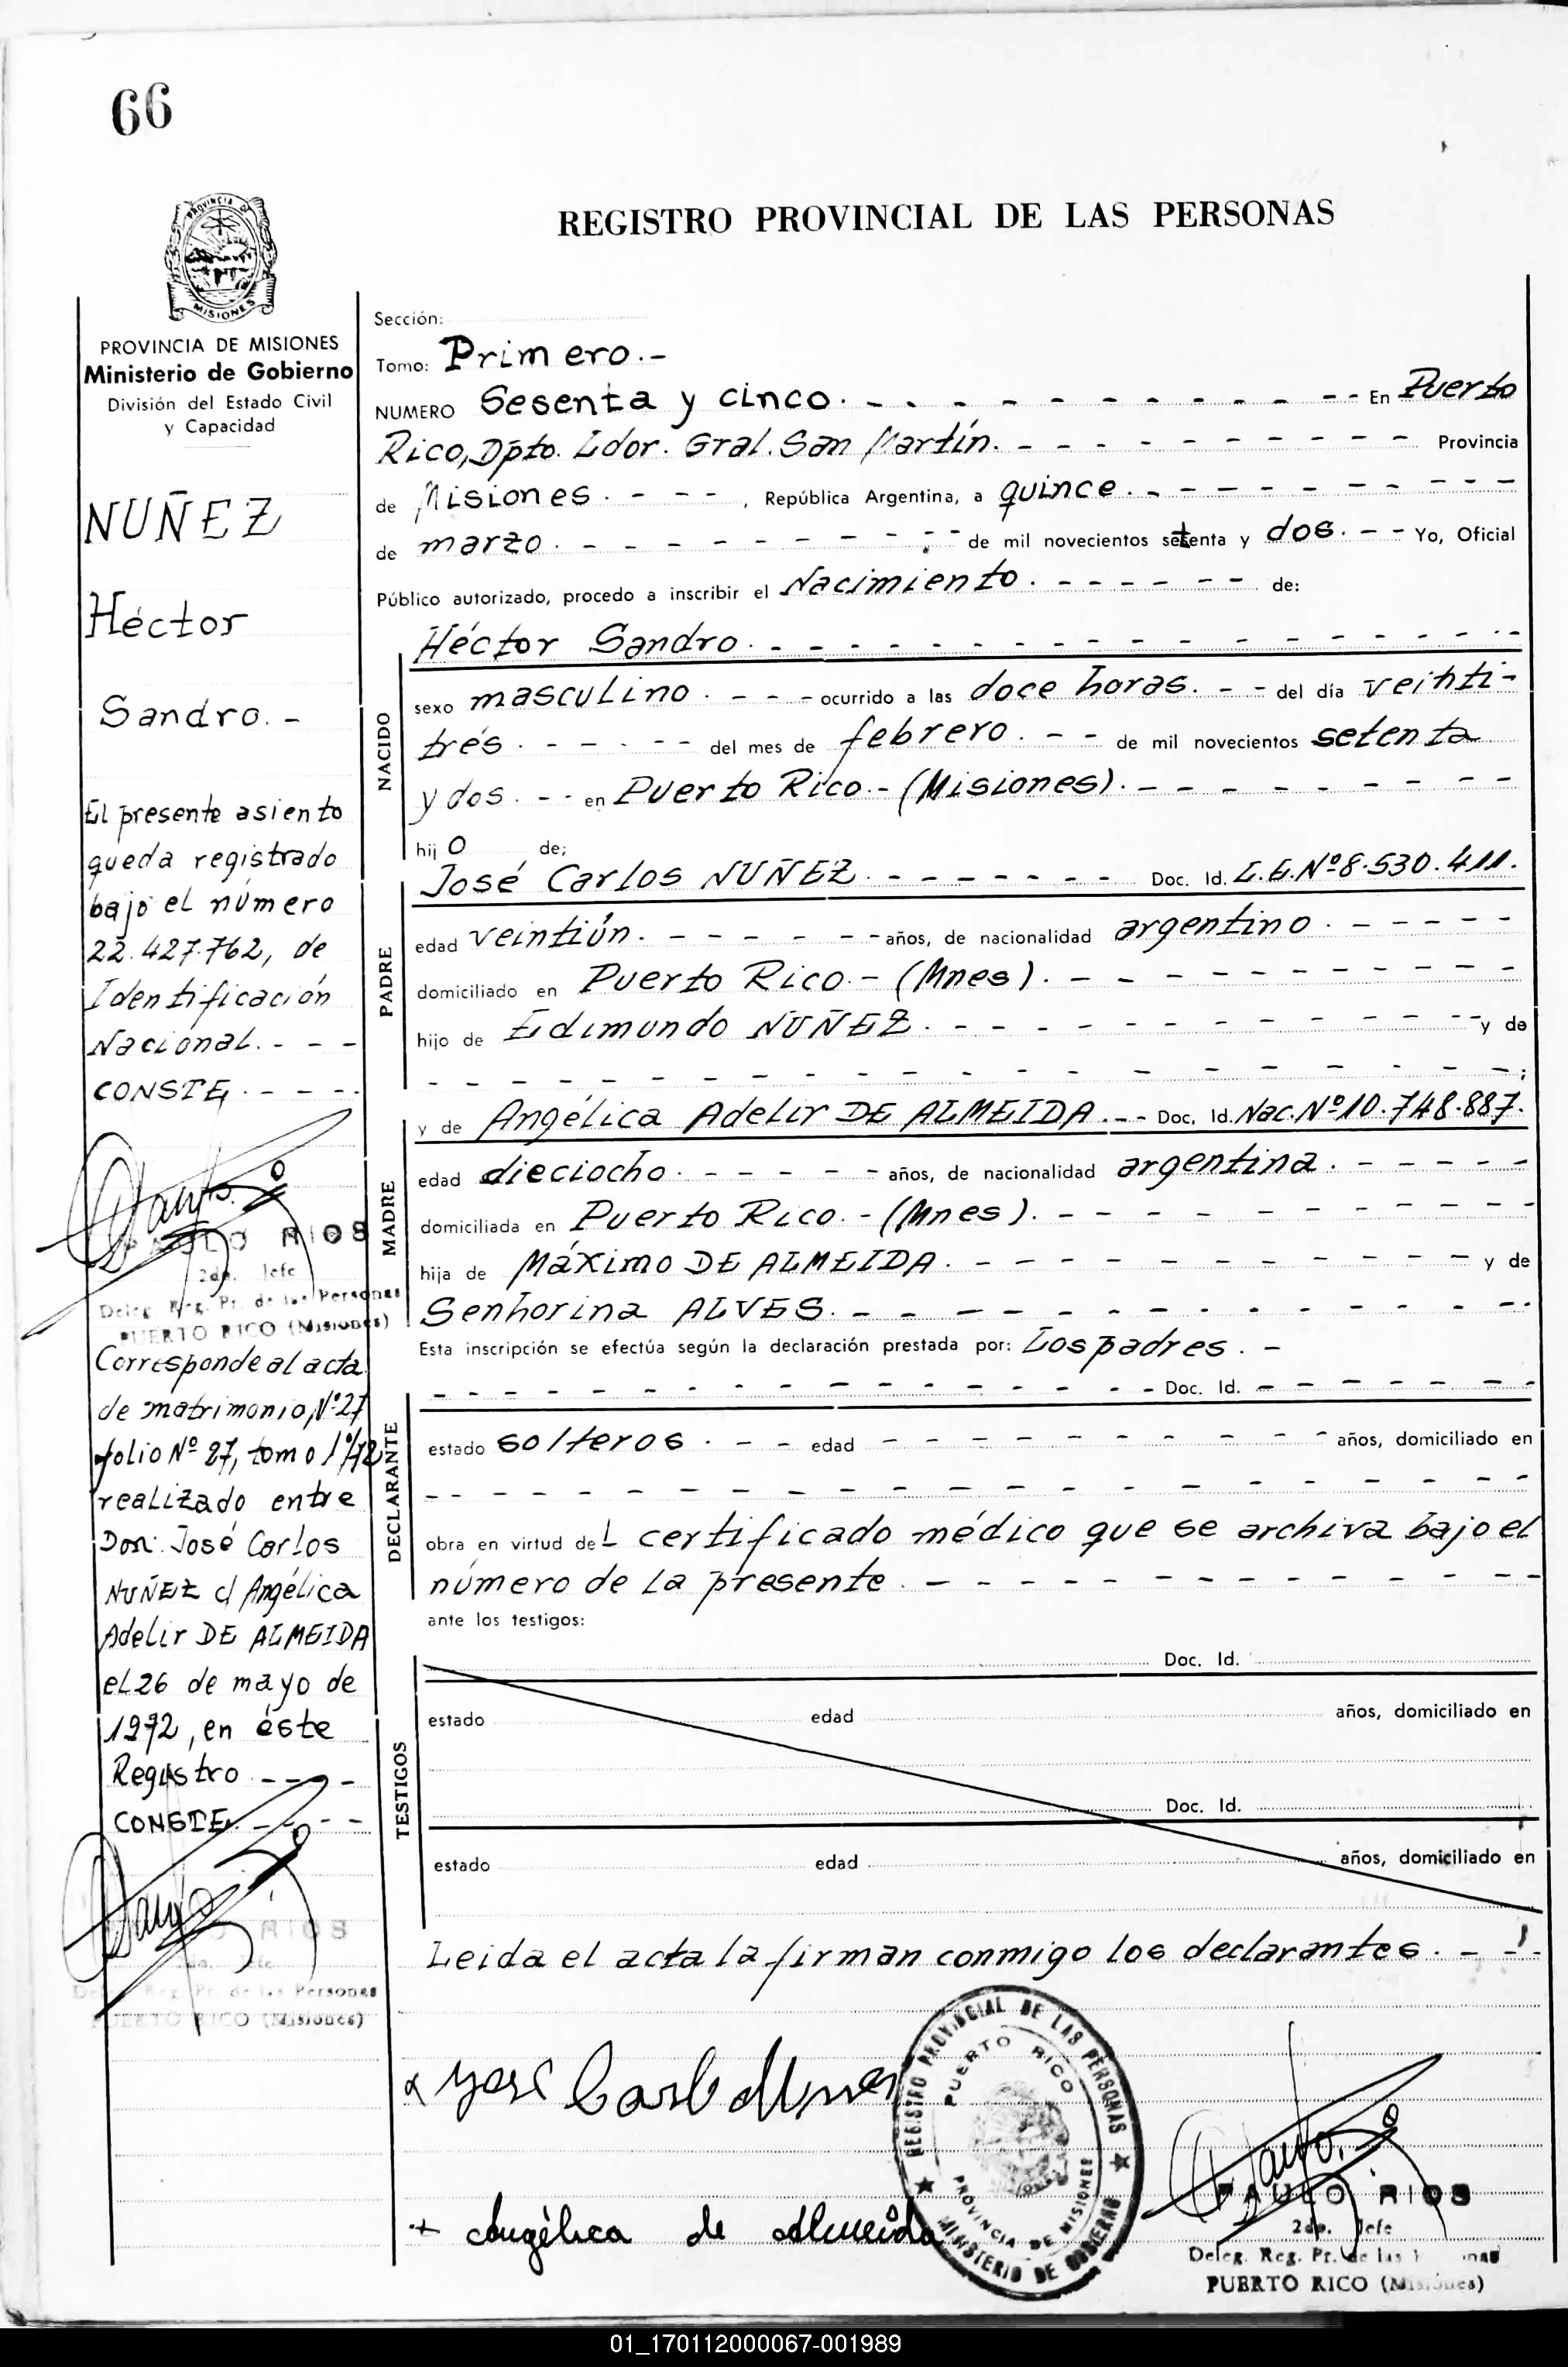 66
REGISTRO PROVINCIAL DE LAS PERSONAS
PROVINCIA DE MISIONES
Ministerio de Gobierno
División del Estado Civil
y Capacidad
NUÑEZ
Héctor
Sandro.-
El presente asiento
queda registrado
bajo el número
22.427.762, de
Identificación
Nacional. - - -
CONSTE. - - -
PAULO RIOS
2do. Jefe
Deleg. Reg. Pr. de las Personas
PUERTO RICO (Misiones)
Corresponde al acta
de matrimonio, Nº 27
folio Nº 27, tomo 1º/72
realizado entre
Don: José Carlos
NUÑEZ c/ Angélica
Adelir DE ALMEIDA
el 26 de mayo de
1972, en éste
Registro - - - -
CONSTE. - - - -
RIOS
Reg. Pr. de las Personas
PUERTO RICO (Misiones)
Sección:
Tomo: Primero.-
NUMERO Sesenta y cinco. - - - - - - - - - - En Puerto
Rico, Dpto. Ldor. Gral. San Martín. - - - - - - - - - - Provincia
de Misiones. - - - , República Argentina, a quince. - - - - - - - - -
de marzo. - - - - - - - - - de mil novecientos setenta y dos. - - Yo, Oficial
Público autorizado, procedo a inscribir el Nacimiento. - - - - - - de:
Héctor Sandro. - - - - - - - - - - - - - - - -
NACIDO
sexo masculino. - - - ocurrido a las doce horas. - - del día veinti-
trés. - - - - - del mes de febrero. - - de mil novecientos setenta
y dos. - - en Puerto Rico.- (Misiones). - - - - - - - - -
hij o de;
José Carlos NUÑEZ. - - - - - - - Doc. Id. L.E.Nº8.530.411.
PADRE
edad veintiún. - - - - - - años, de nacionalidad argentino. - - - - -
domiciliado en Puerto Rico.- (Mnes). - - - - - - - - - - -
hijo de Edimundo NUÑEZ. - - - - - - - - - - - - y de
- - - - - - - - - - - - - - - - - - - - - ;
y de Angélica Adelir DE ALMEIDA. - - Doc. Id. Nac.Nº10.748.887.
MADRE
edad dieciocho. - - - - - años, de nacionalidad argentina. - - - - -
domiciliada en Puerto Rico.- (Mnes). - - - - - - - - - -
hija de Máximo DE ALMEIDA. - - - - - - - - - - - y de
Senhorina ALVES. - - - - - - - - - - - - - - -
Esta inscripción se efectúa según la declaración prestada por: Los padres. -
- - - - - - - - - - - - - - - - - Doc. Id. - - - - - - -
DECLARANTE
estado solteros. - - edad - - - - - - - - - - años, domiciliado en
- - - - - - - - - - - - - - - - - - - - -
obra en virtud del certificado médico que se archiva bajo el
número de la presente. - - - - - - - - - - - -
ante los testigos:
Doc. Id.
TESTIGOS
estado edad años, domiciliado en
Doc. Id.
estado edad años, domiciliado en
Leida el acta la firman conmigo los declarantes. - -
x José Carlo Nuñes
+ Angélica de Almeida
REGISTRO PROVINCIAL DE LAS PERSONAS
PUERTO RICO
PROVINCIA DE MISIONES
MINISTERIO DE GOBIERNO
PAULO RIOS
2do. Jefe
Deleg. Reg. Pr. de las
PUERTO RICO (Misiones)
01_170112000067-001989